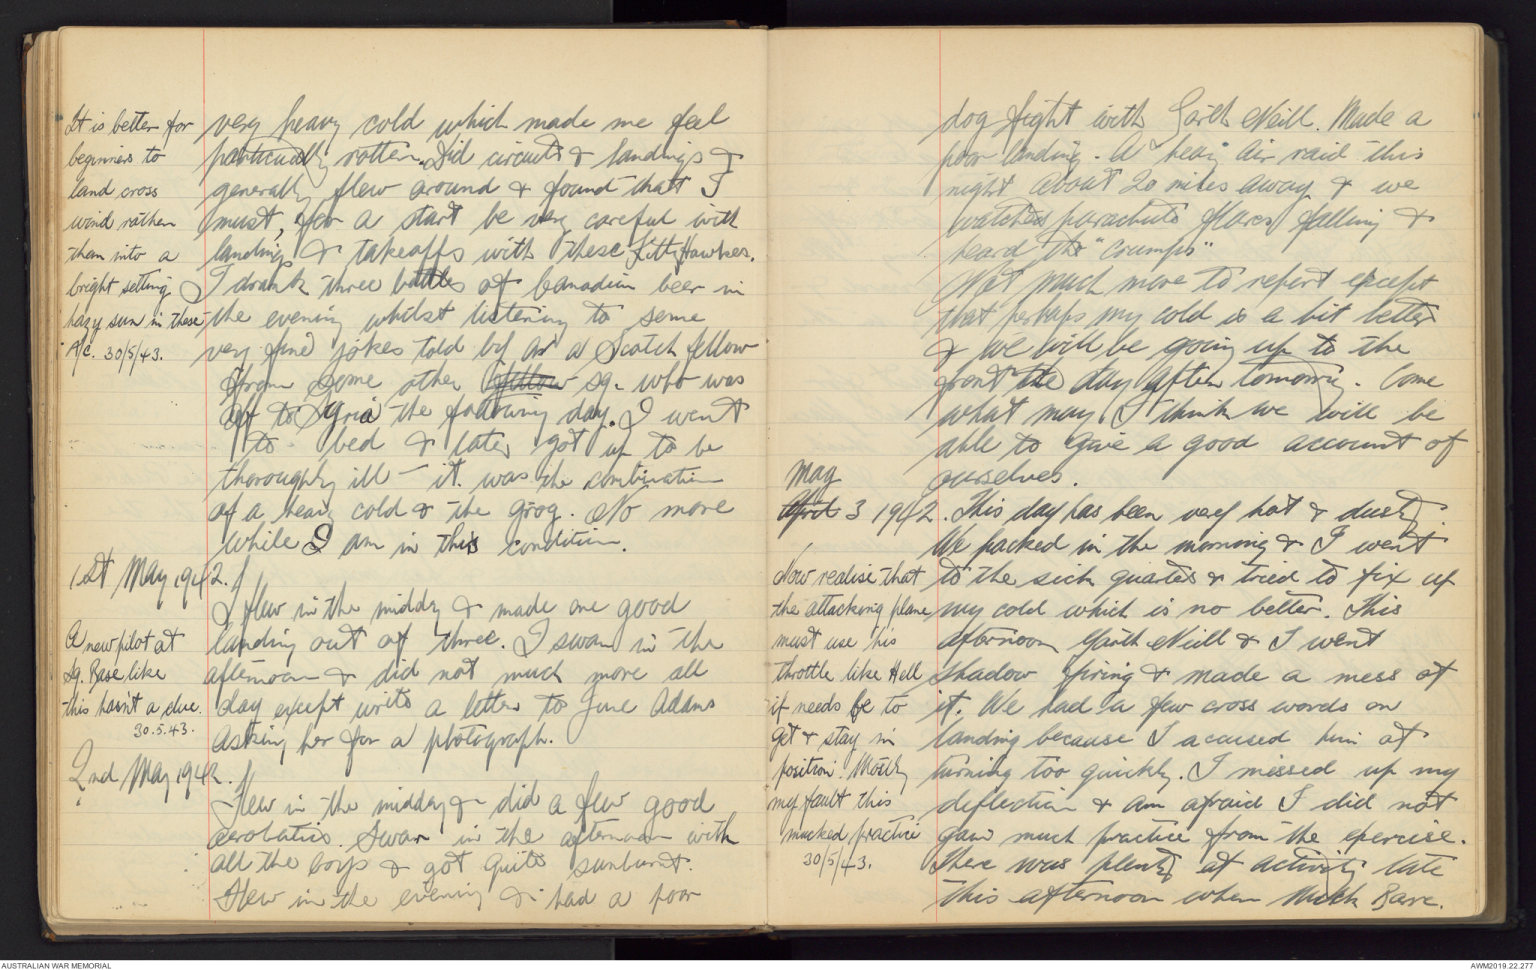 It is better for
beginners to
land cross
wind rather
than into a
bright setting
hazy sun in these
A/c. 30/5/43.
very heavy cold which made me feel
particularly rotten. Did circuits & landings &
generally flew around & found that I
must, for a start be very careful with
landings & takeoffs with these KittyHawkes.
I drank three bottles of Canadian beer in
the evening whilst listening to some
very fine jokes told by a Scotch fellow
from some other fellow sq. who was
off to Syria the following day. I went
to bed & later got up to be
thoroughly ill - it was the combination
of a heavy cold & the grog. No more
while I am in this condition.
1st May 1942.
I flew in the midday & made one good
landing out of three. I swam in the
afternoon & did not much more all
day except write a letter to June Adams
asking her for a photograph.
A new pilot at
Sq. Base like
this hasn't a clue.
30.5.43.
2nd May 1942.
Flew in the midday & did a few good
aerobatics. Swam in the afternoon with
all the boys & got quite sunburnt.
Flew in the evening & had a poor
dog fight with Garth Neill. Made a
poor landing. A heavy air raid this
night about 20 miles away & we
watched parachute flares falling &
heard the "crumps"
Not much more to report except
that perhaps my cold is a bit better
& we will be going up to the
front the day after tomorrow. Come
what may I think we will be
able to give a good account of
ourselves.
May
April 3 1942. This day has been very hot & dusty.
We packed in the morning & I went
to the sick quarters & tried to fix up
my cold which is no better. This
afternoon Garth Neill & I went
shadow firing & made a mess of
it. We had a few cross words on
landing because I accused him of
turning too quickly. I missed up my
deflection & am afraid I did not
gain much practice from the exercise.
There was plenty of activity late
this afternoon when Nick Barr.
Now realise that
the attacking plane
must use his
throttle like Hell
if needs be to
get & stay in
position. Mostly
my fault this
mucked practice
30/5/43.
AUSTRALIAN WAR MEMORIAL
AWM2019.22.277